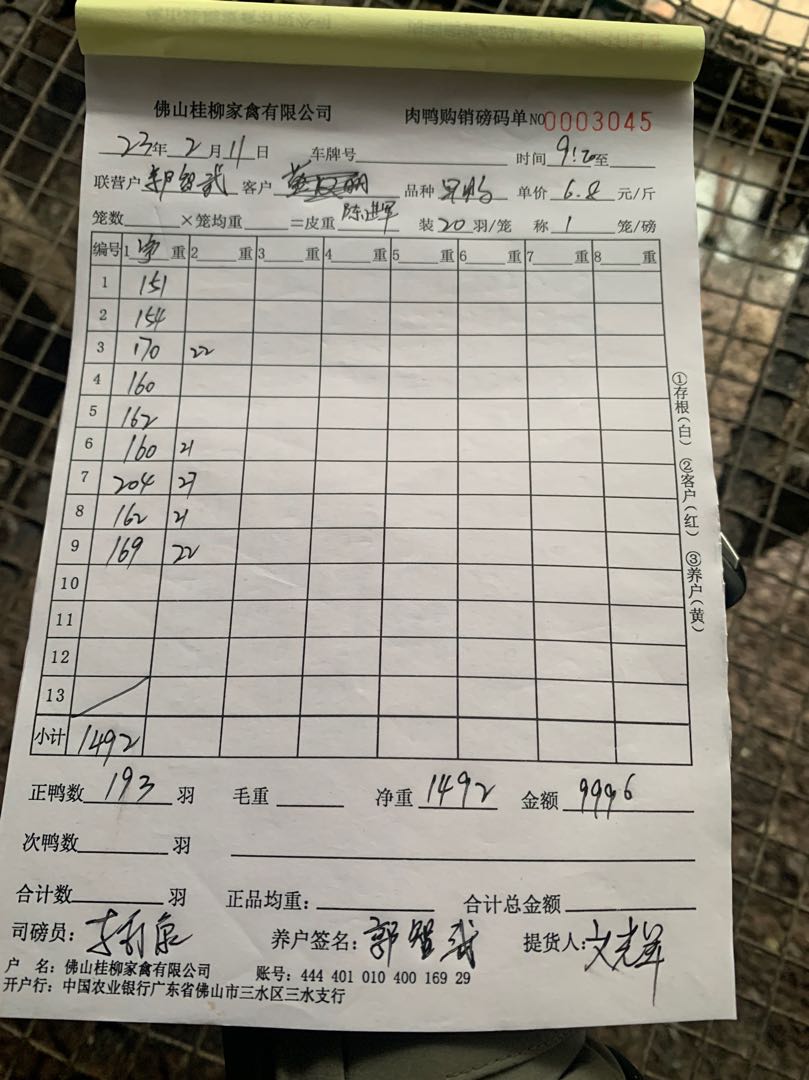 佛山桂柳家禽有限公司 肉鸭购销磅码单 NO0003045
23年 2月 11日 车牌号 时间 9:20至
联营户 郭智武 客户 品种 单价 6.8 元/斤
笼数 ×笼均重 =皮重 陈进军 装 20 羽/笼 称 1 笼/磅
编号 1 重 2 重 3 重 4 重 5 重 6 重 7 重 8 重
1 151
2 154
3 170 22
4 160
5 162
6 160 21
7 204 27
8 162 21
9 169 22
10
11
12
13
小计 1492
正鸭数 193 羽 毛重 净重 1492 金额 9996
次鸭数 羽
合计数 羽 正品均重: 合计总金额
司磅员: 养户签名: 郭智武 提货人:
户 名: 佛山桂柳家禽有限公司 账号: 444 401 010 400 169 29
开户行: 中国农业银行广东省佛山市三水区三水支行
①存根(白) ②客户(红) ③养户(黄)